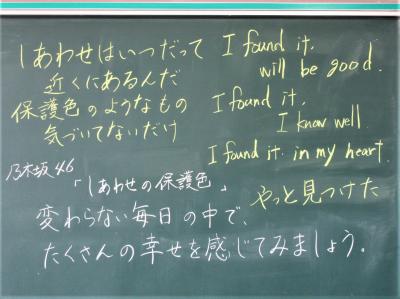 しあわせはいつだって
近くにあるんだ
保護色のようなもの
気づいてないだけ
I found it.
will be good.
I found it.
I know well
I found it. in my heart.
やっと見つけた
乃木坂46
「しあわせの保護色」
変わらない毎日の中で、
たくさんの幸せを感じてみましょう。